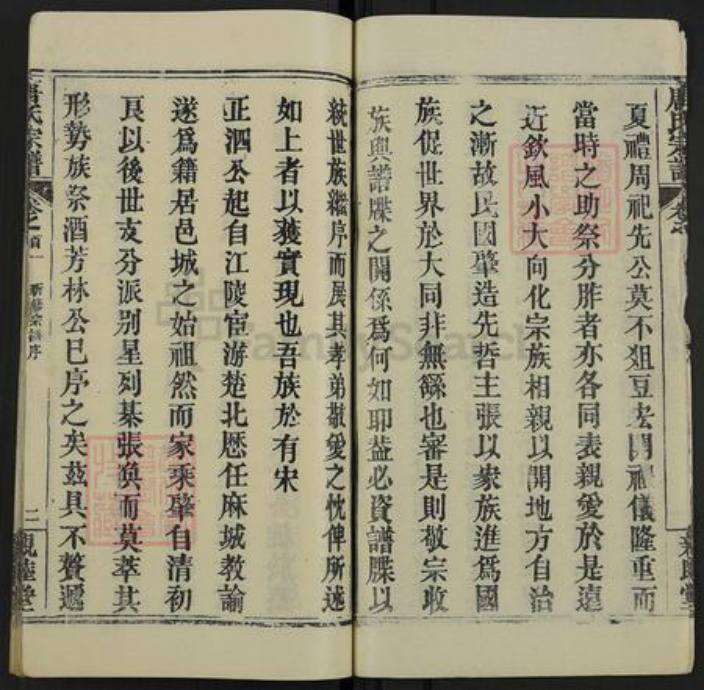 夏禮周祀先公莫不俎豆宏開祀儀隆重而
當時之助祭分胙者亦各同表親愛於是遠
近欽風小大向化宗族相親以開地方自治
之漸故民國肇造先哲主張以家族進爲國
族促世界於大同非無繇也審是則敬宗收
族與譜牒之關係爲何如耶益必資譜牒以
統世族繼序而展其孝弟敬愛之忱俾所述
如上者以獲實現也吾族於有宋
正泗公起自江陵宦游楚北歷任麻城教諭
遂爲籍居邑城之始祖然而家乘肇自清初
艮以後世支分派別星列棊張渙而莫萃其
形勢族祭酒芳林公巳序之矣茲具不贅遞
氏宗譜
卷之首一
新修宗譜序
二
親睦堂
FamilySearch